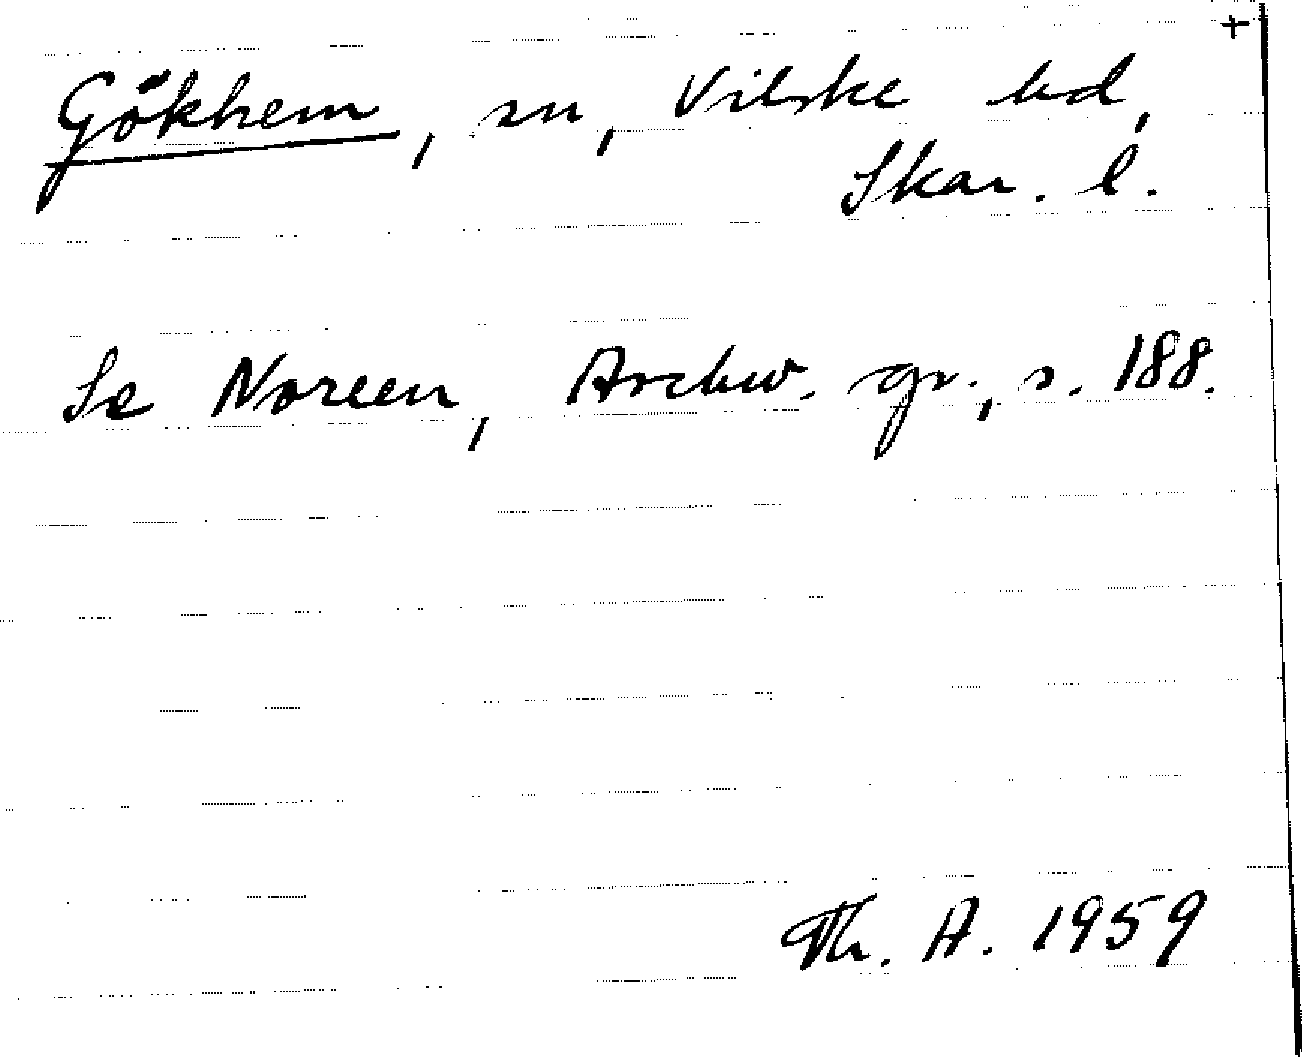 +
Gökhem, sn, Vilske hd,
Skar. l.
Se Noreen, Aschw. gr., s. 188.
Th. A. 1959